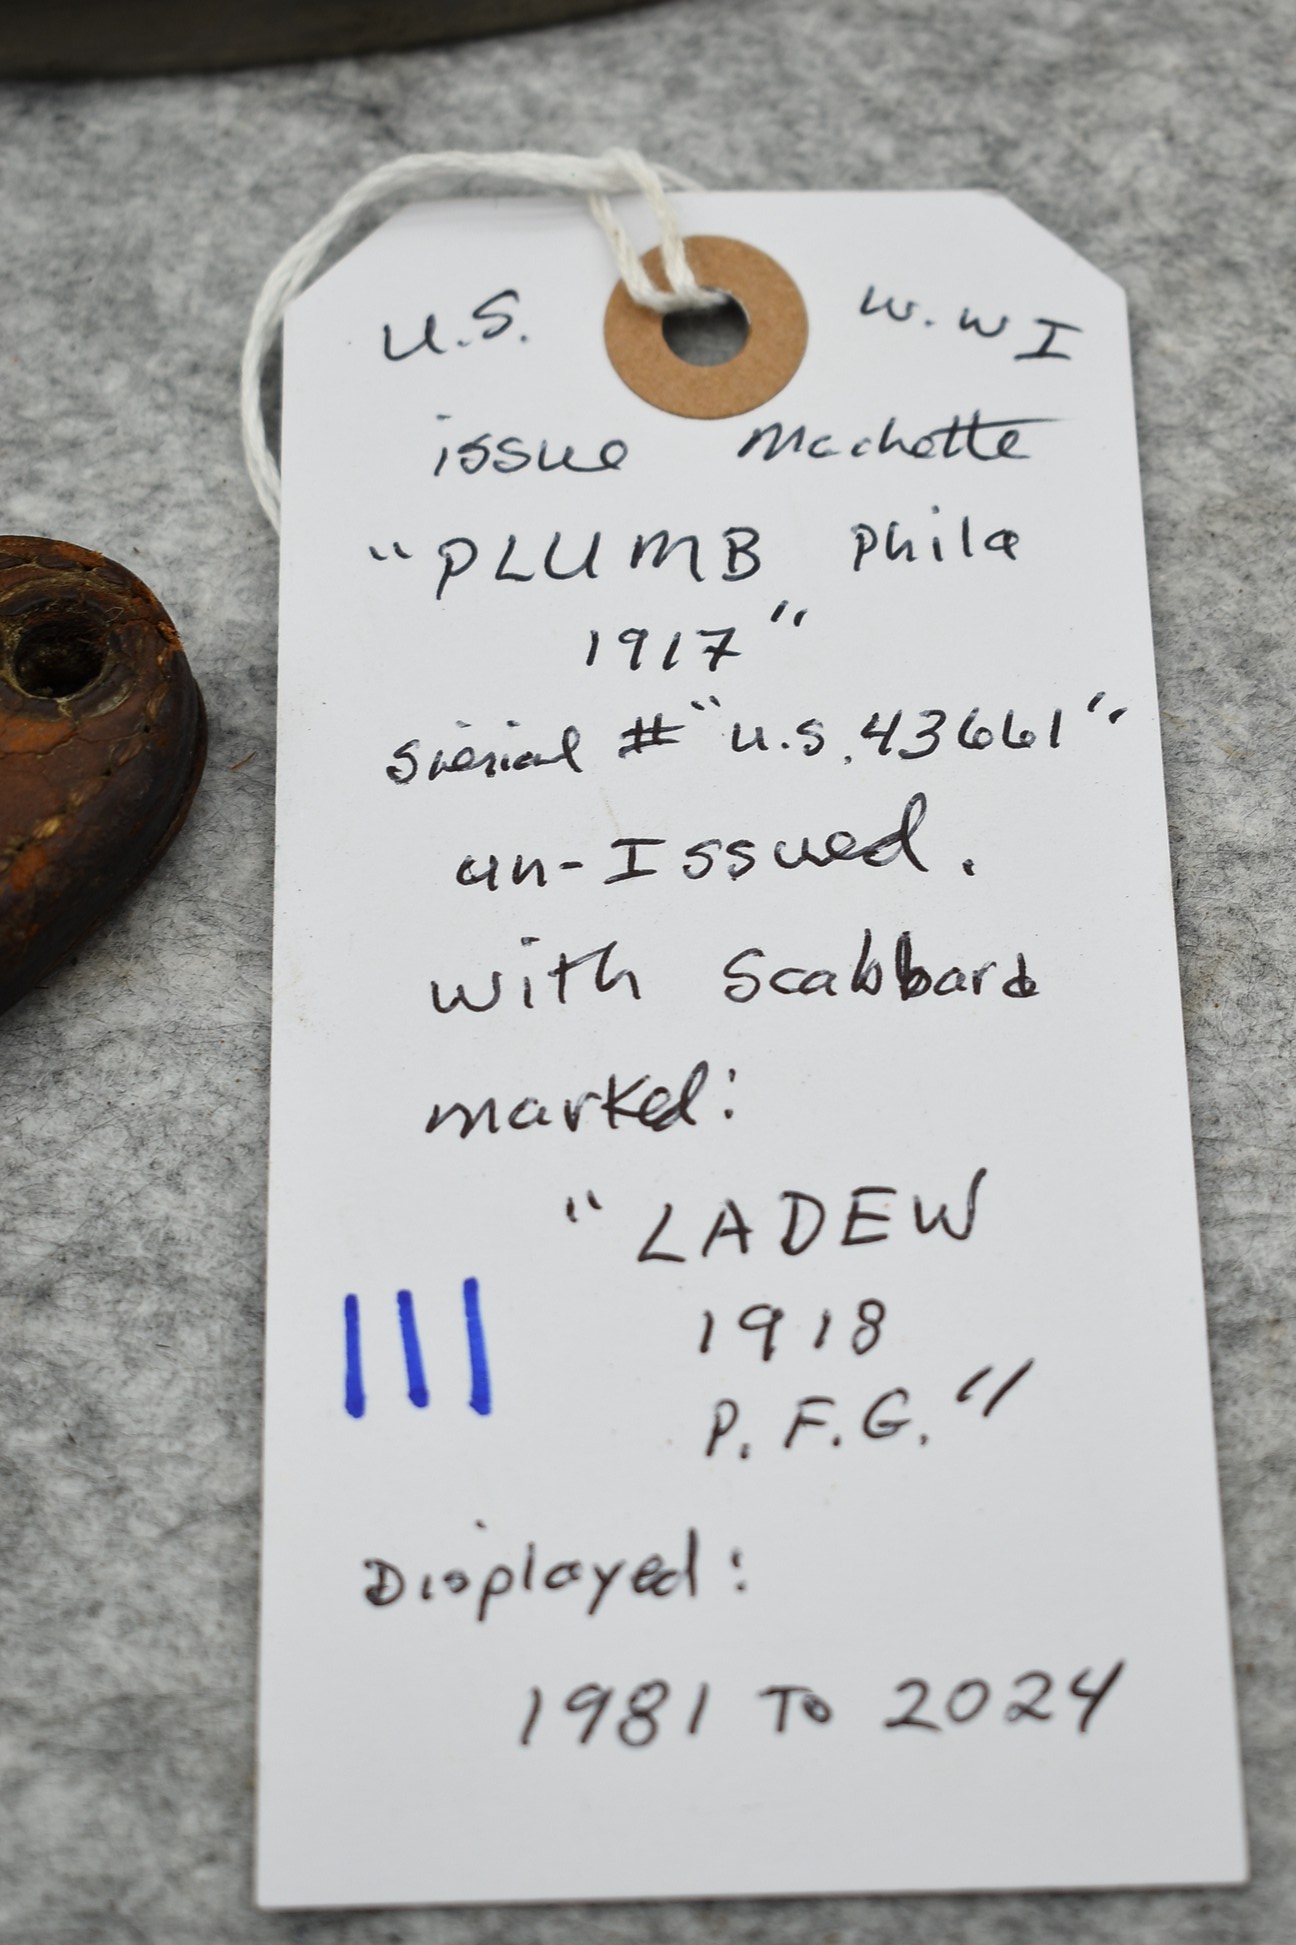 U.S. W.WI
issue Machette
"PLUMB Phila
1917"
Sierial # "U.S. 43661"
un-Issued.
with Scabbard
marked:
"LADEW
1918
P.F.G."
III
Displayed:
1981 To 2024